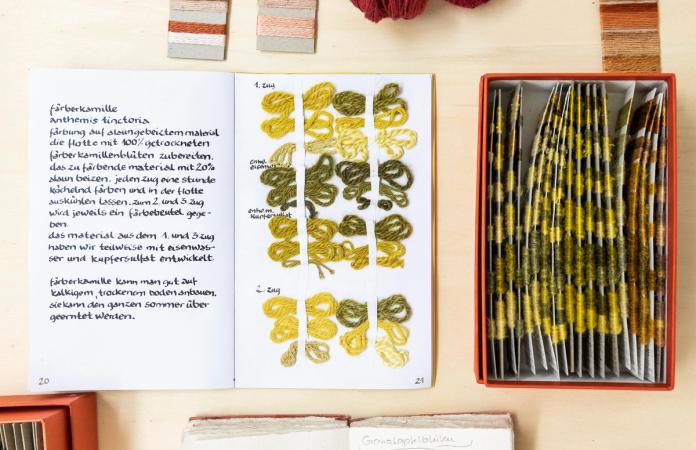 färberkamille
anthemis tinctoria
färbung auf alaungebeiztem material
die flotte mit 100% getrockneten
färberkamillenblüten zubereiten.
das zu färbende material mit 20%
alaun beizen. jeden zug eine stunde
köchelnd färben und in der flotte
auskühlen lassen. zum 2. und 3. zug
wird jeweils ein färbebeutel gege-
ben.
das material aus dem 1. und 3. zug
haben wir teilweise mit eisenwas-
ser und kupfersulfat entwickelt.
färberkamille kann man gut auf
kalkigem, trockenem boden anbauen.
sie kann den ganzen sommer über
geerntet werden.
20
1. zug
entw.
entw. m.
kupfersulfat
2. zug
21
Granatapfelblüten